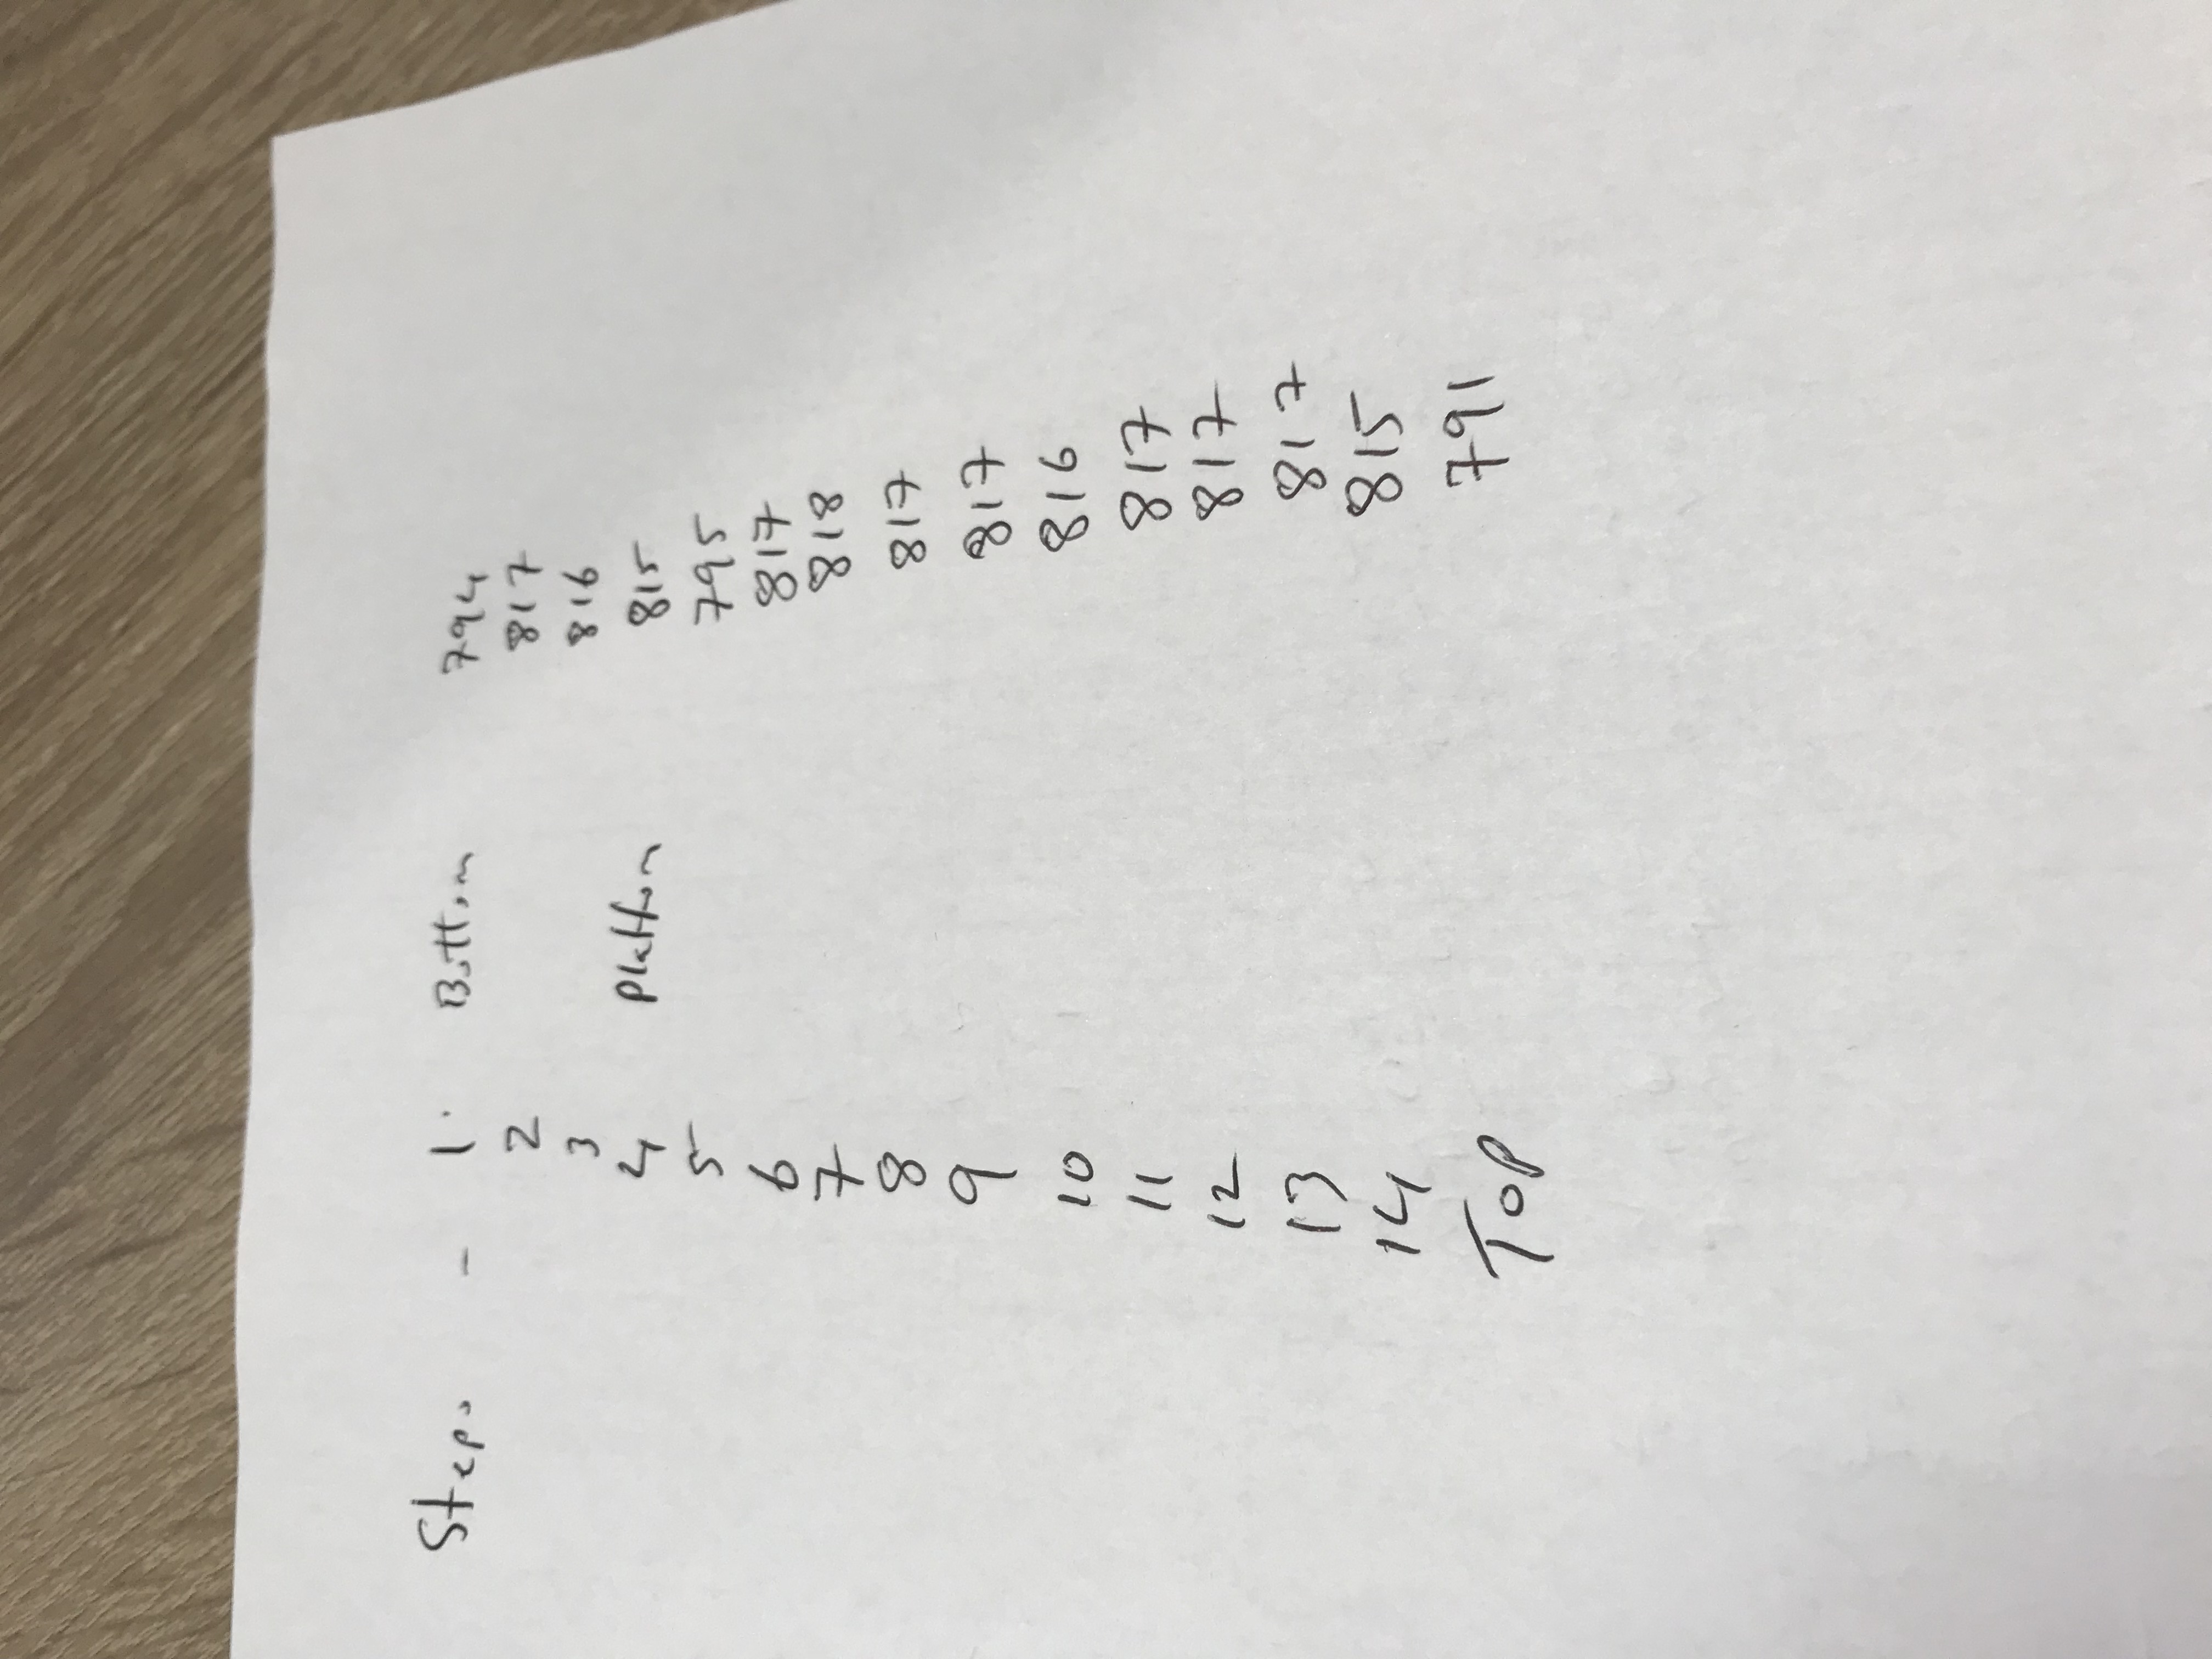 Steps - 1. Bottom 794
2 817
3 816
4 platform 815
5 795
6 817
7 818
8 817
9 817
10 816
11 817
12 817
13 817
14 815
TOP 791